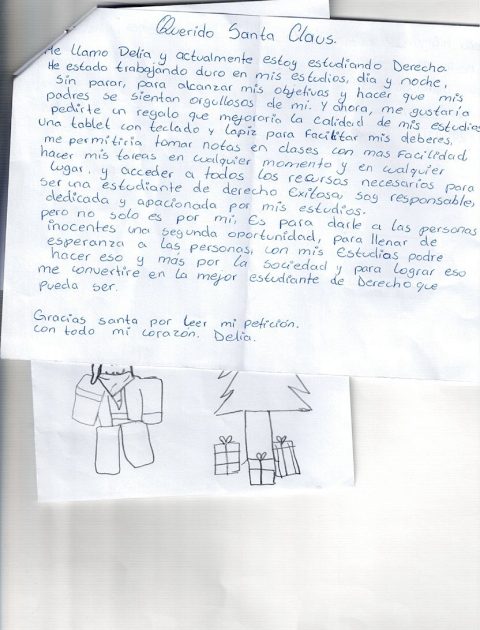 Querido Santa Claus.
Me llamo Delia y actualmente estoy estudiando Derecho.
He estado trabajando duro en mis estudios, día y noche,
Sin parar, para alcanzar mis objetivos y hacer que mis
padres se sientan orgullosos de mí. Y ahora, me gustaría
pedirte un regalo que mejoraría la calidad de mis estudios
una tablet con teclado y lápiz para facilitar mis deberes.
me permitiria tomar notas en clases con mas facilidad,
hacer mis tareas en cualquier momento y en cualquier
lugar. y acceder a todos los recursos necesarios para
ser una estudiante de derecho exitosa, soy responsable,
dedicada y apacionada por mis estudios.
pero no solo es por mi. Es para darle a las personas
inocentes una segunda oportunidad, para llenar de
esperanza a las personas, con mis estudios podre
hacer eso y más por la sociedad y para lograr eso
me convertire en la mejor estudiante de Derecho que
pueda ser.
Gracias santa por leer mi petición.
con todo mi corazón. Delia.